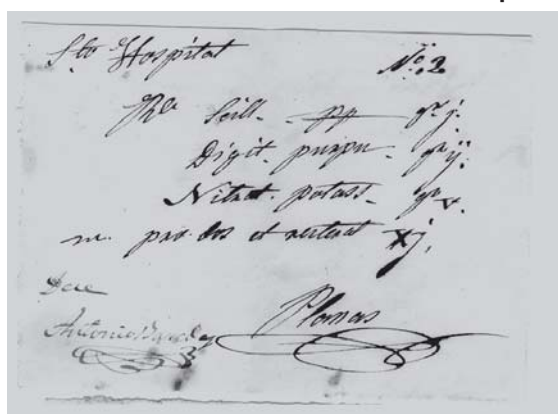 Sto Hospital No. 2
Rle Scill. pp gr j.
Digit. purpu. gr ij.
Nitrat. potass. gr x.
m. pro dos et xj.
Dere
Antonio
Plomas